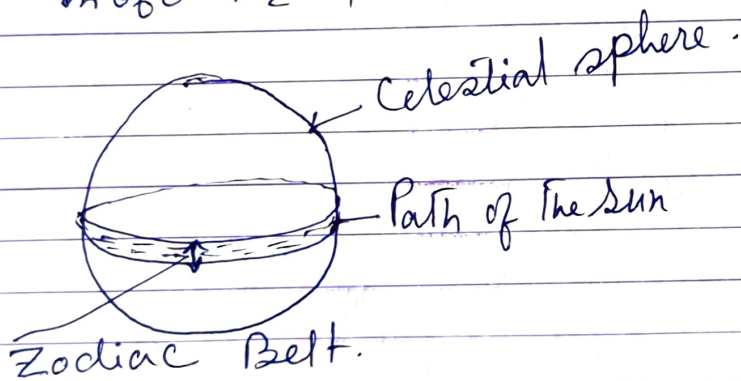 Celestial sphere.
Path of The Sun
Zodiac Belt.